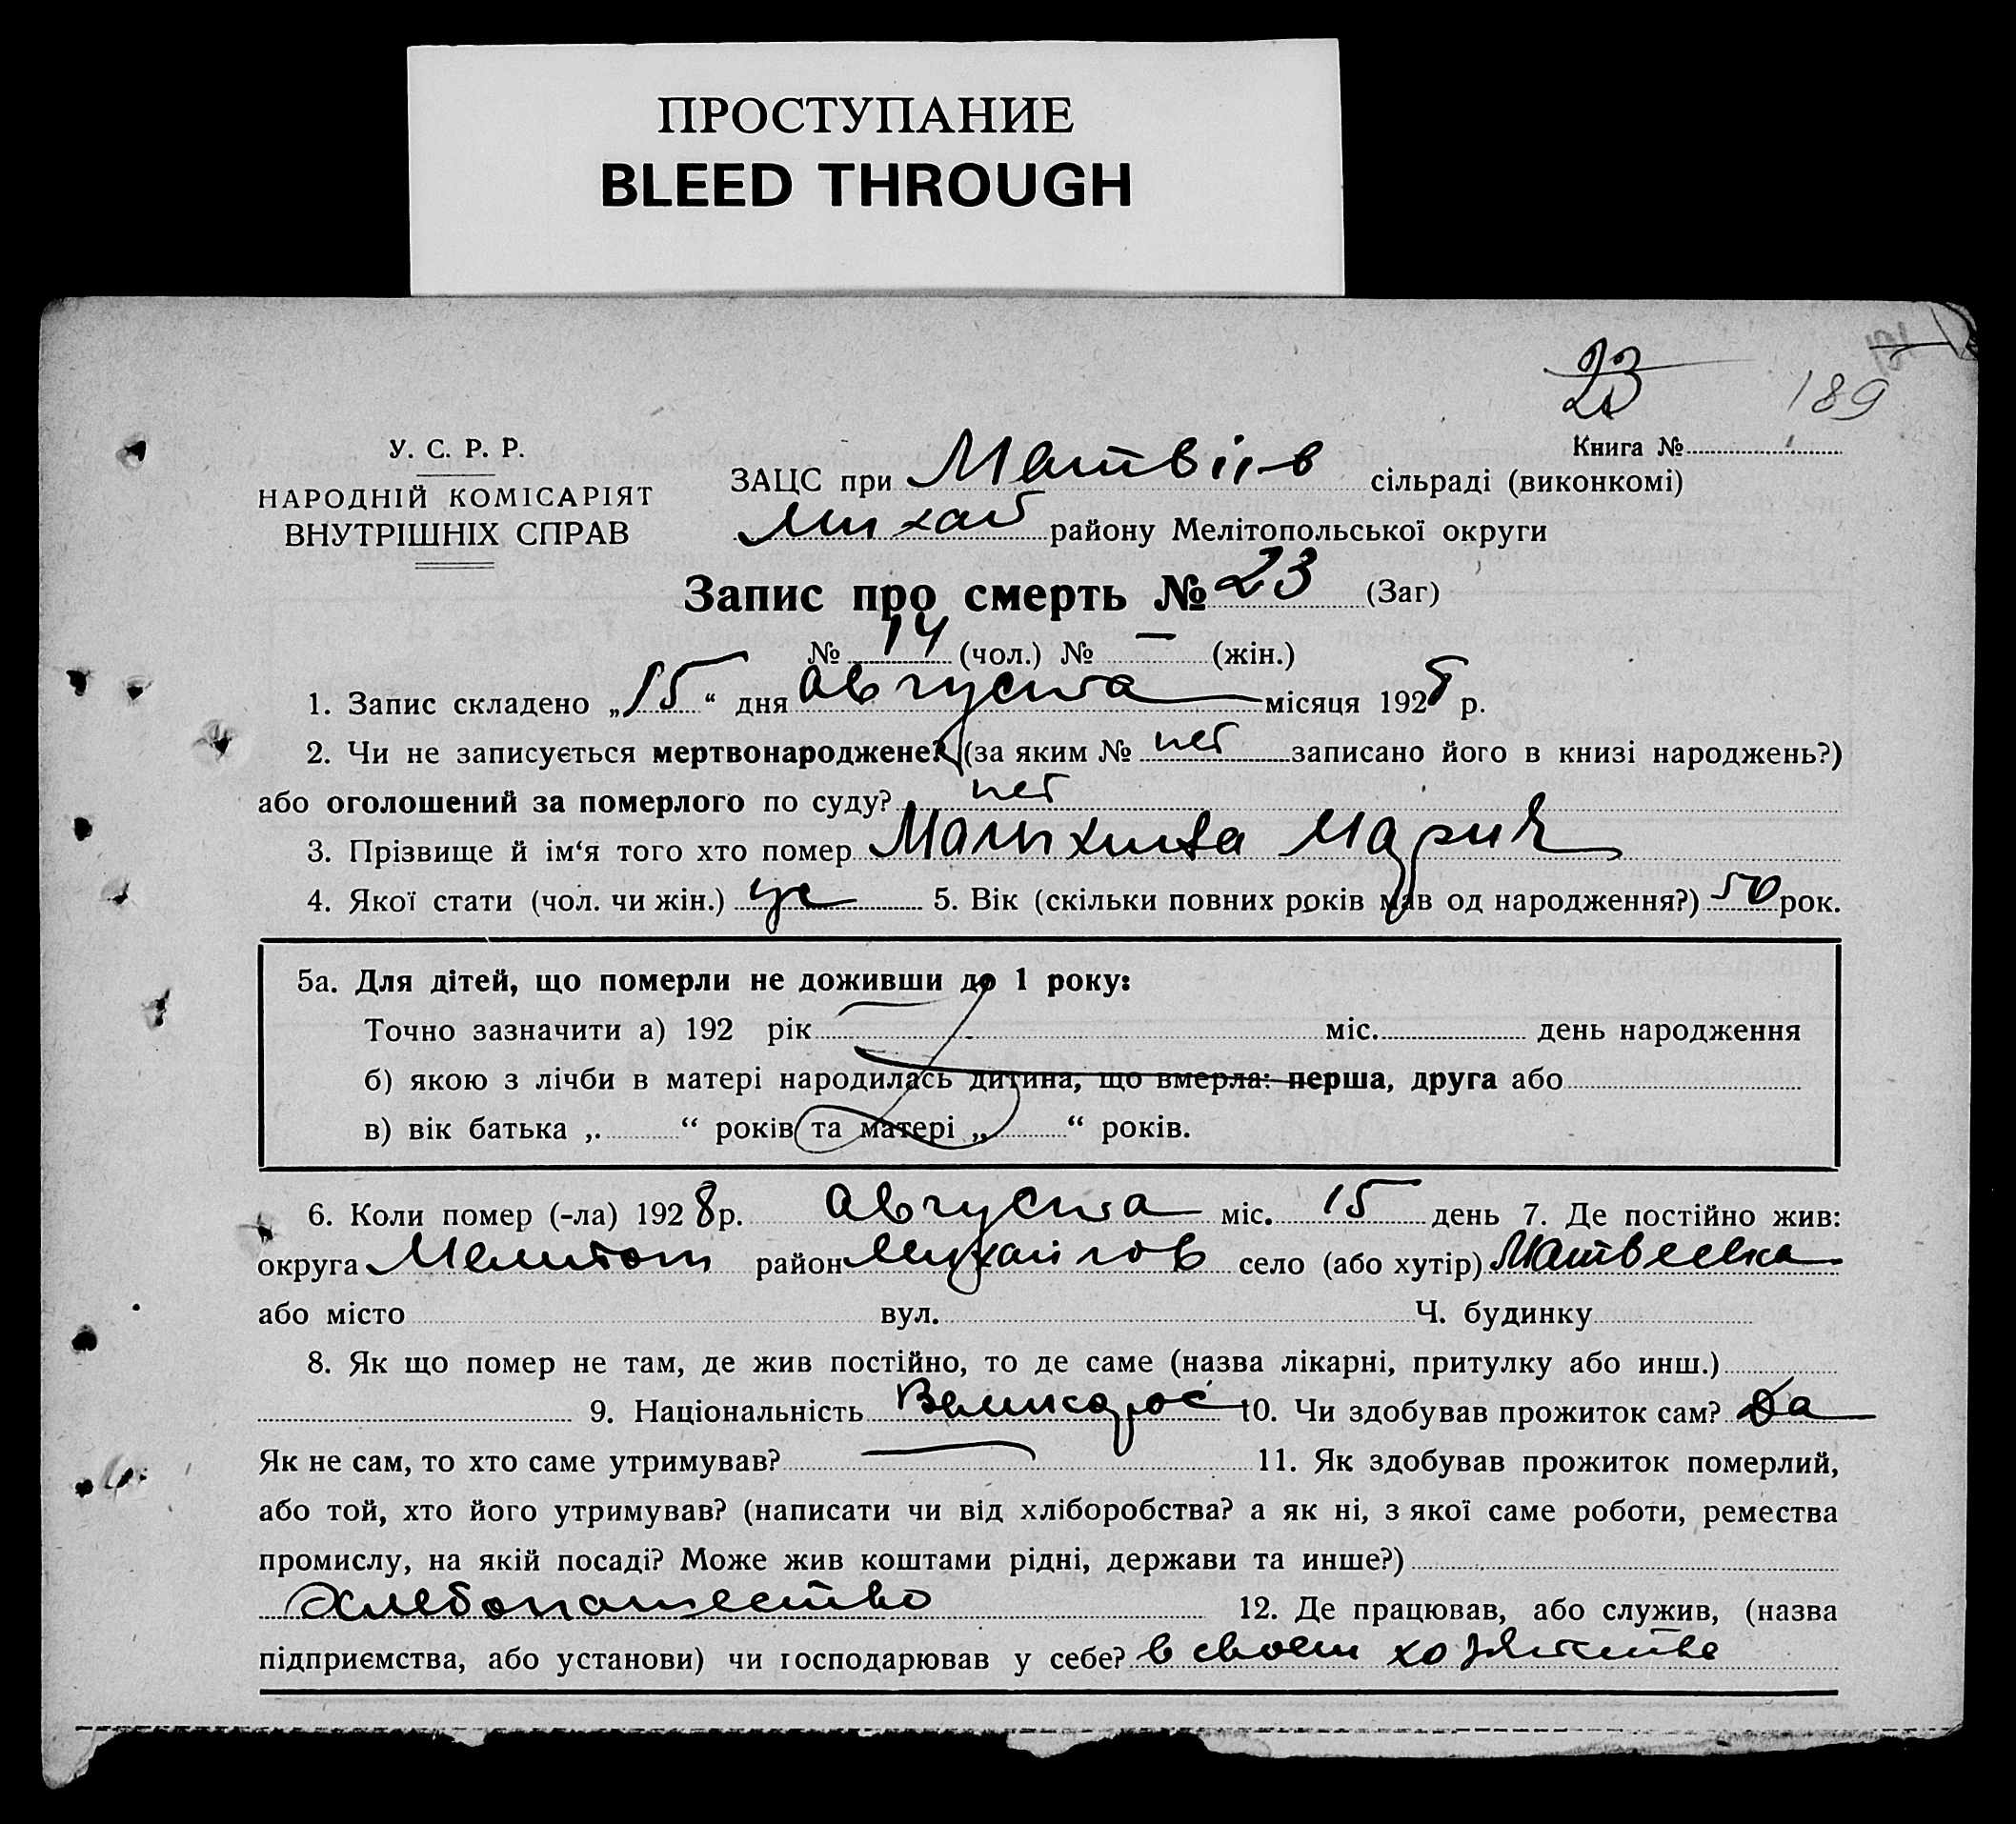 ПРОСТУПАНИЕ
BLEED THROUGH
23
189
У. С. Р. Р.
НАРОДНІЙ КОМІСАРІЯТ
ВНУТРІШНІХ СПРАВ
Книга №
ЗАЦС при Матвіів сільраді (виконкомі)
Михай району Мелітопольської округи
Запис про смерть № 23 (Заг)
№ 14 (чол.) № — (жін.)
1. Запис складено „15“ дня Августа місяця 1928 р.
2. Чи не записується мертвонароджене? (за яким № нет записано його в книзі народжень?)
або оголошений за померлого по суду? нет
3. Прізвище й ім‘я того хто помер Мария
4. Якої стати (чол. чи жін.) 5. Вік (скільки повних років мав од народження?) 50 рок.
5а. Для дітей, що померли не доживши до 1 року:
Точно зазначити а) 192 рік міс. день народження
б) якою з лічби в матері народилась дитина, що вмерла: перша, друга або
в) вік батька „ “ років та матері „ “ років.
6. Коли помер (-ла) 1928 р. Августа міс. 15 день 7. Де постійно жив:
округа Мелитоп район Михайлов село (або хутір) Матвеевка
або місто вул. Ч. будинку
8. Як що помер не там, де жив постійно, то де саме (назва лікарні, притулку або инш.)
9. Національність Великорос 10. Чи здобував прожиток сам? Да
Як не сам, то хто саме утримував? — 11. Як здобував прожиток померлий,
або той, хто його утримував? (написати чи від хліборобства? а як ні, з якої саме роботи, ремества
промислу, на якій посаді? Може жив коштами рідні, держави та инше?)
Хлебопашество 12. Де працював, або служив, (назва
підприємства, або установи) чи господарював у себе? в своем хозяйстве